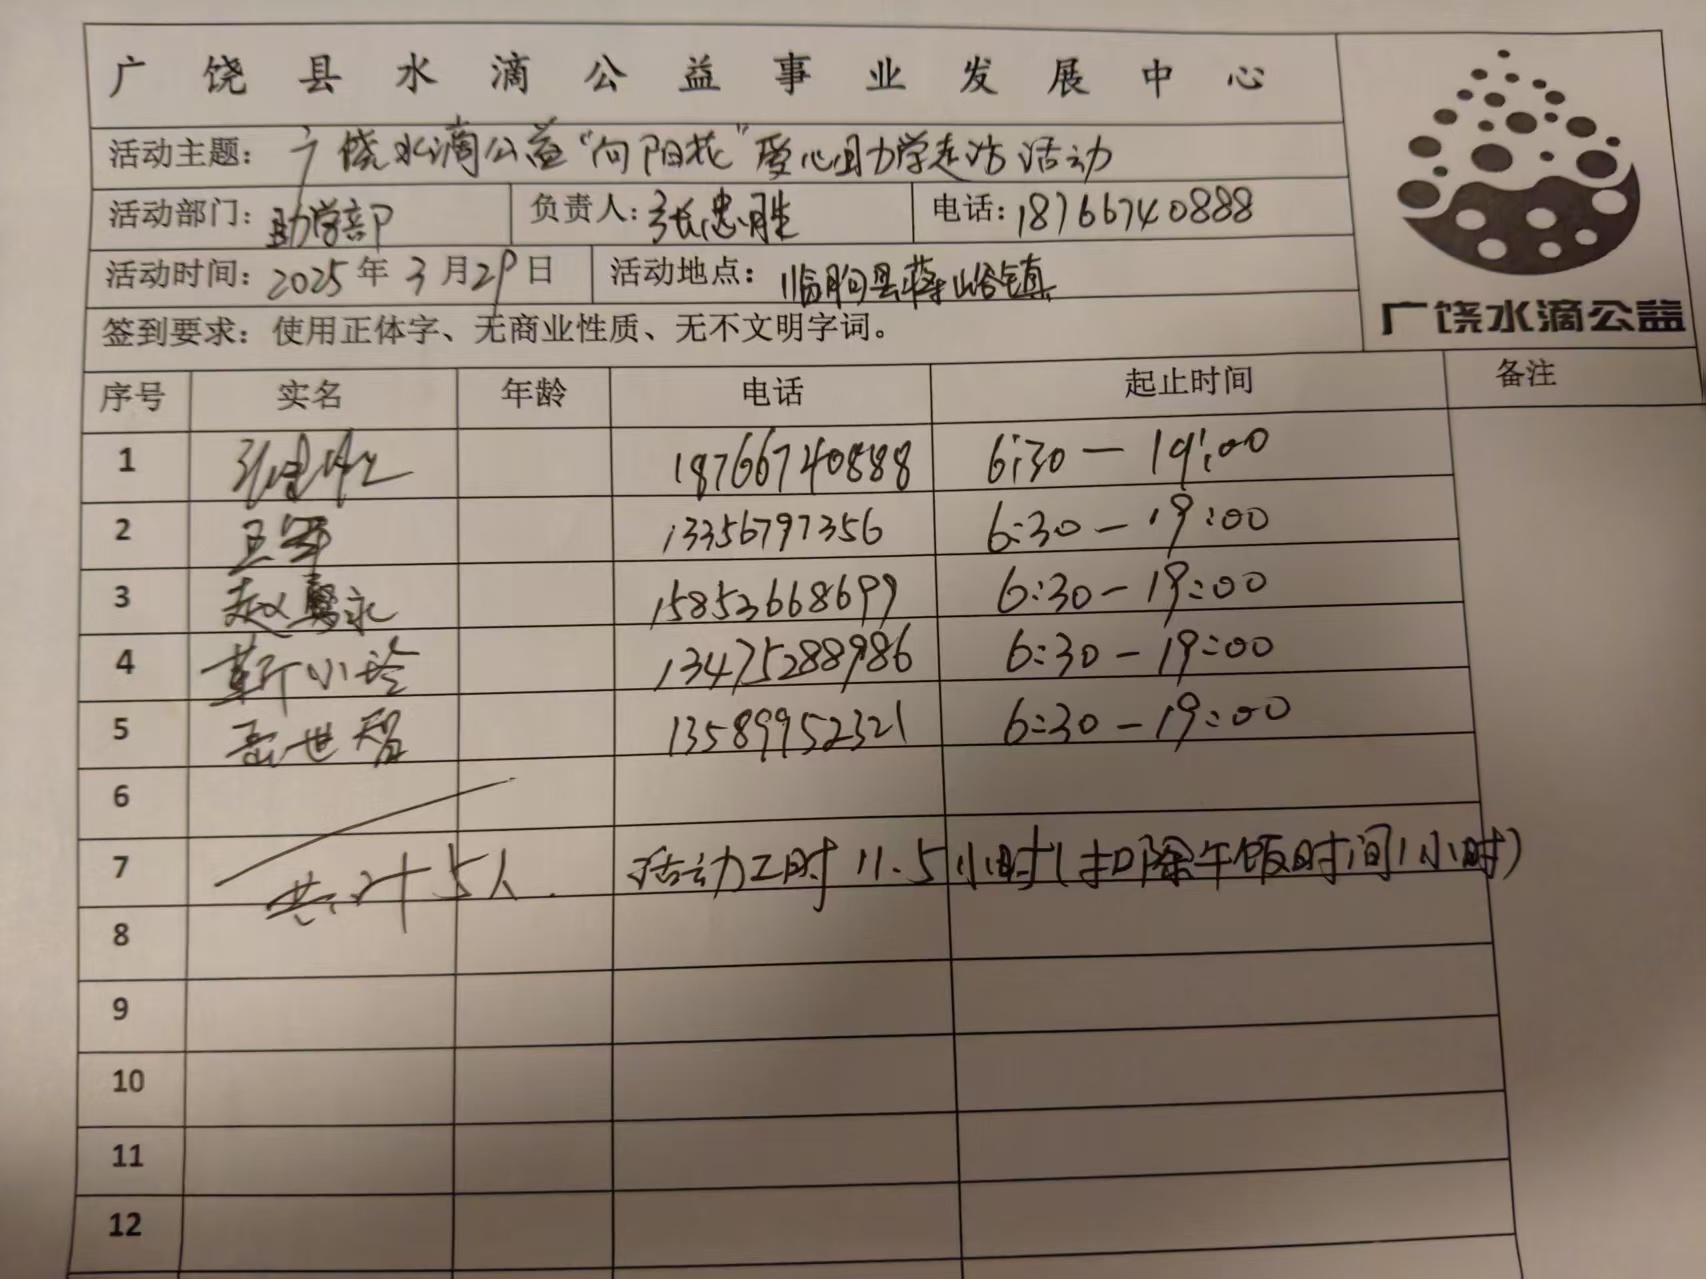 广饶县水滴公益事业发展中心
活动主题：广饶水滴公益“向阳花”爱心助学走访活动
活动部门：助学部 负责人：张忠胜 电话：18766740888
活动时间：2025年3月29日 活动地点：临朐县蒋峪镇
签到要求：使用正体字、无商业性质、无不文明字词。
广饶水滴公益
序号 实名 年龄 电话 起止时间 备注
1 张忠胜 18766740888 6:30—19:00
2 王军 13356797356 6:30—19:00
3 赵永 15853668699 6:30—19:00
4 靳小玲 13475288986 6:30—19:00
5 岳世智 13589952321 6:30—19:00
6
7 共计5人. 活动工时11.5小时(扣除午饭时间1小时)
8
9
10
11
12